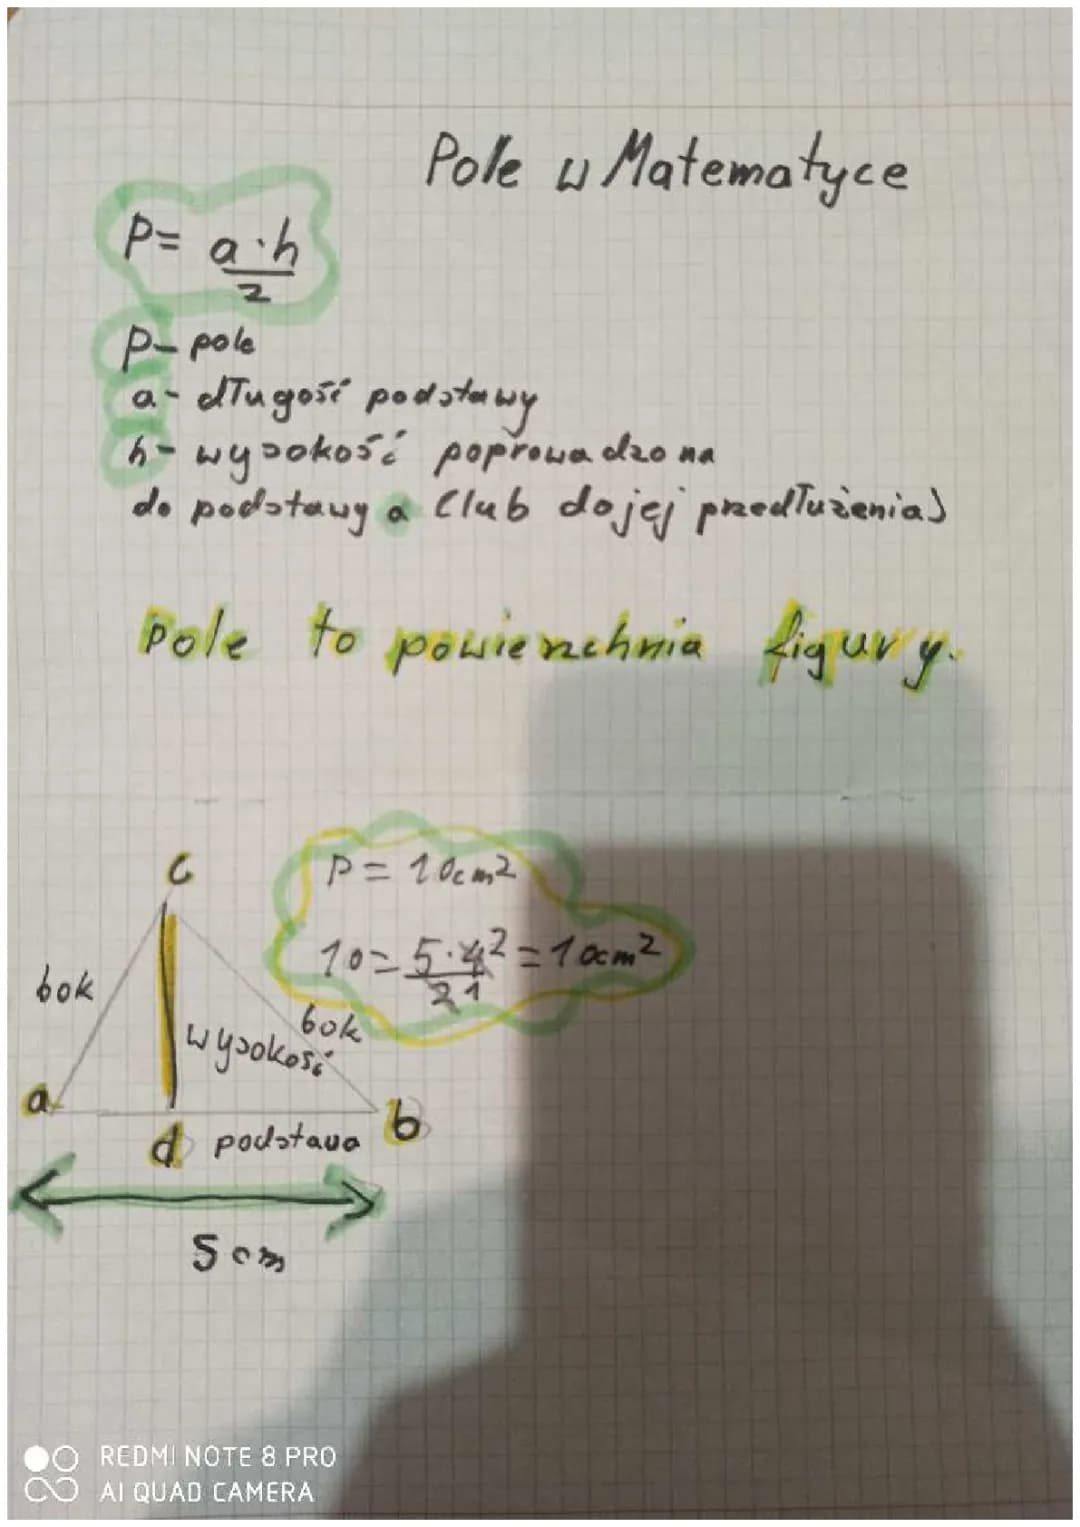 Pole w Matematyce
P= a·h
2
P- pole
a- długość podstawy
h- wysokość poprowadzona
do podstawy a (lub do jej przedłużenia)
Pole to powierzchnia figury.
c
P = 10cm²
10= 5·4² = 10cm²
2 1
bok
bok
wysokość
a
b
d podstawa
5 cm
REDMI NOTE 8 PRO
AI QUAD CAMERA